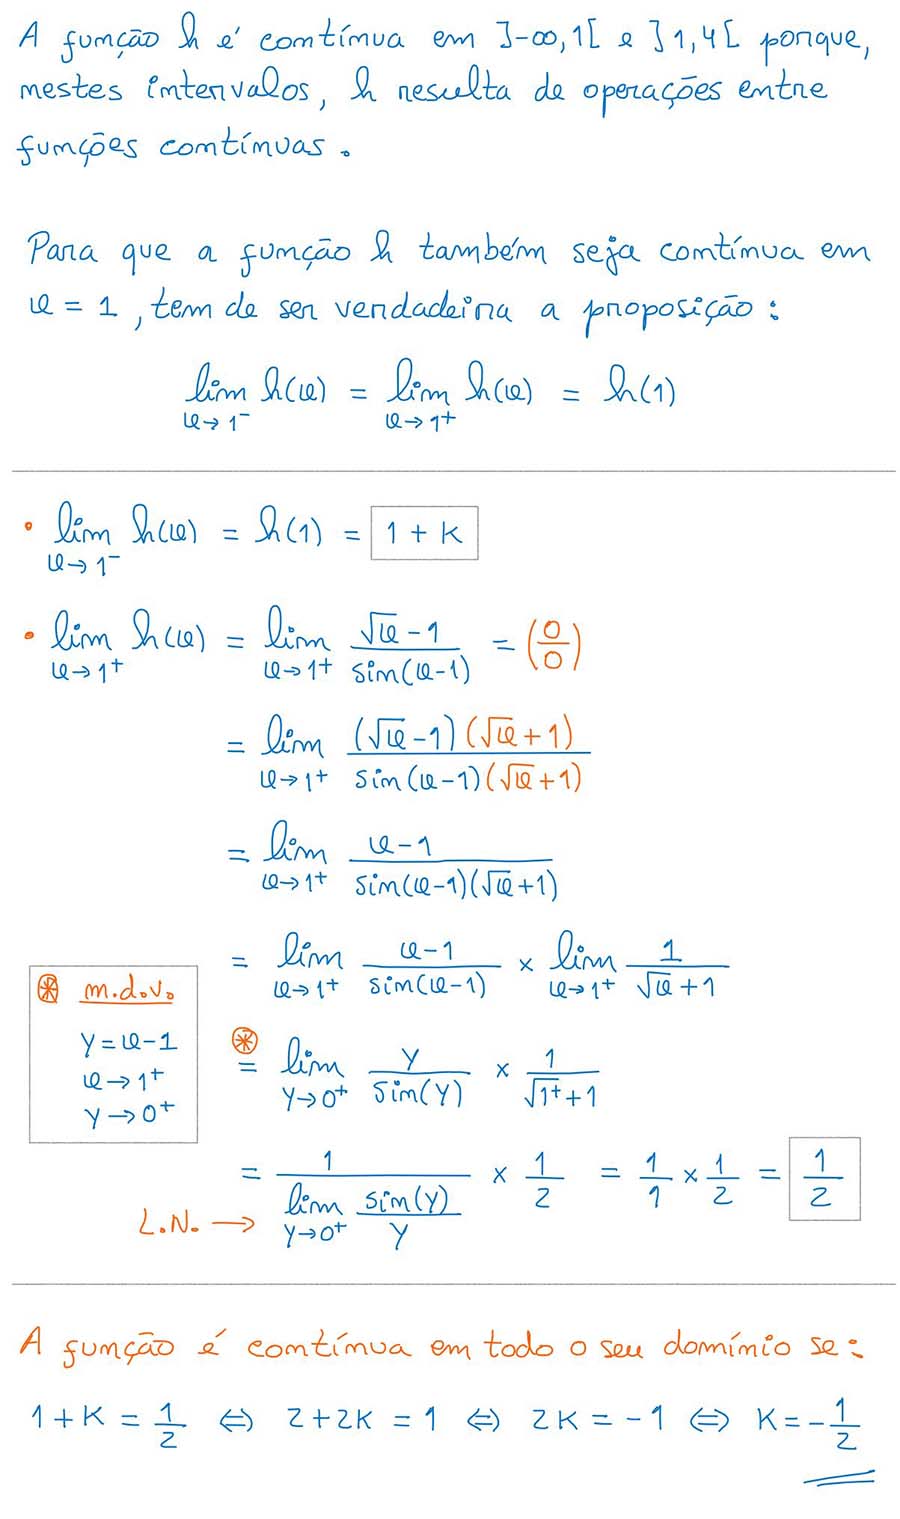 A função h é contínua em ]-∞,1[ e ]1,4[ porque,
nestes intervalos, h resulta de operações entre
funções contínuas.
Para que a função h também seja contínua em
x = 1, tem de ser verdadeira a proposição:
lim h(x) = lim h(x) = h(1)
x→1⁻ x→1⁺
• lim h(x) = h(1) = 1 + K
x→1⁻
• lim h(x) = lim (√x - 1)/(sin(x-1)) = (0/0)
x→1⁺ x→1⁺
= lim ((√x - 1)(√x + 1))/(sin(x-1)(√x + 1))
x→1⁺
= lim (x-1)/(sin(x-1)(√x + 1))
x→1⁺
= lim (x-1)/(sin(x-1)) × lim 1/(√x + 1)
x→1⁺ x→1⁺
⊛ m.d.v.
y = x-1
x→1⁺
y→0⁺
⊛
= lim y/(sin(y)) × 1/(√1⁺ + 1)
y→0⁺
= 1/(lim sin(y)/y) × 1/2 = 1/1 × 1/2 = 1/2
y→0⁺
L.N. →
A função é contínua em todo o seu domínio se:
1 + K = 1/2 ⇔ 2 + 2K = 1 ⇔ 2K = -1 ⇔ K = -1/2